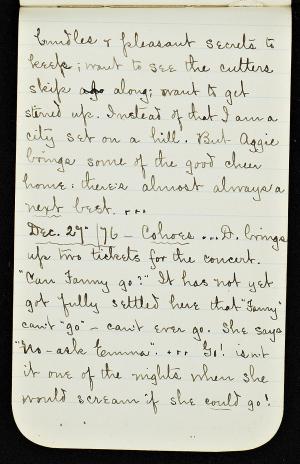 bundles & pleasant secrets to
keep; want to see the cutters
skip along; want to get
stirred up. Instead of that I am a
city set on a hill. But Aggie
brings some of the good cheer
home; there's almost always a
next best. ...
Dec. 27" '76 – Cohoes ... D. brings
up two tickets for the concert.
"Can Fanny go?" It has not yet
got fully settled here that "Fanny"
can't "go" – can't ever go. She says
"No – ask Emma". ... Go! isn't
it one of the nights when she
would scream if she could go!